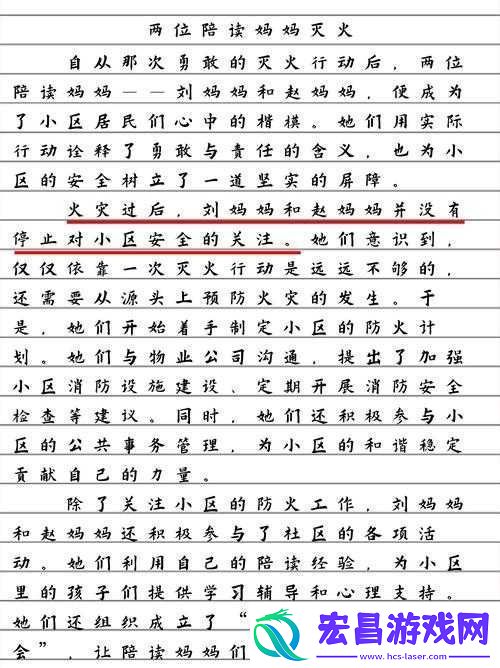 两位陪读妈妈灭火
自从那次勇敢的灭火行动后，两位
陪读妈妈——刘妈妈和赵妈妈，便成为
了小区居民们心中的楷模。她们用实际
行动诠释了勇敢与责任的含义，也为小
区的安全树立了一道坚实的屏障。
火灾过后，刘妈妈和赵妈妈并没有
停止对小区安全的关注。她们意识到，
仅仅依靠一次灭火行动是远远不够的，
还需要从源头上预防火灾的发生。于
是，她们开始着手制定小区的防火计
划。她们与物业公司沟通，提出了加强
小区消防设施建设、定期开展消防安全
检查等建议。同时，她们还积极参与小
区的公共事务管理，为小区的和谐稳定
贡献自己的力量。
除了关注小区的防火工作，刘妈妈
和赵妈妈还积极参与了社区的各项活
动。她们利用自己的陪读经验，为小区
里的孩子们提供学习辅导和心理支持。
她们还组织成立了“
会”，让陪读妈妈们
宏昌游戏网
www.hcs-laser.com